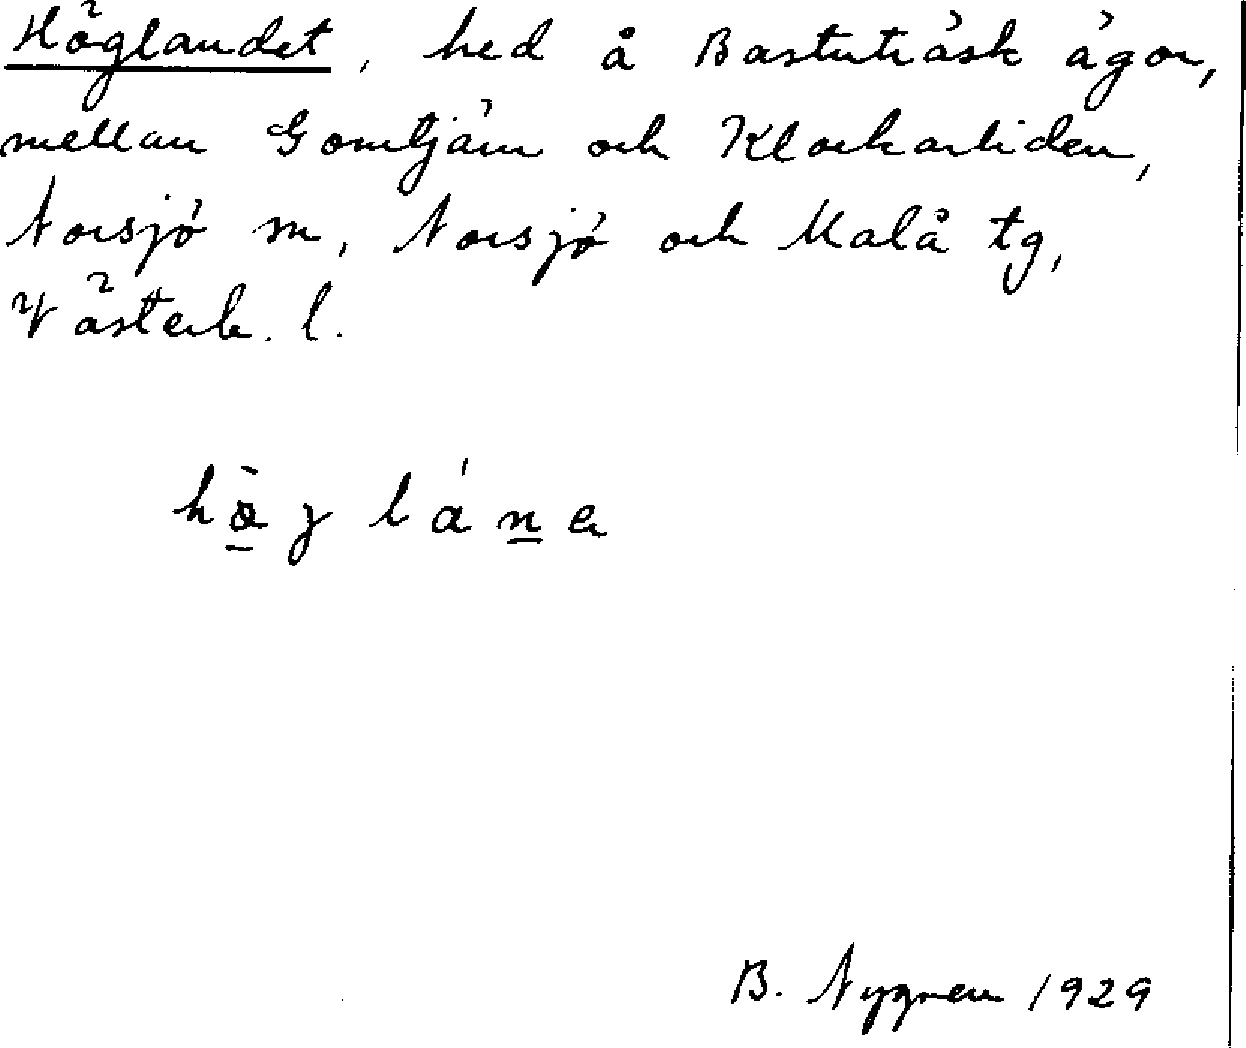 Höglandet, hed å Bastuträsk ägor,
mellan Gomtjärn och Klockarliden,
Norsjö sn, Norsjö och Malå tg,
Västerb. l.
hö̱g láṉa
B. Nygren 1929